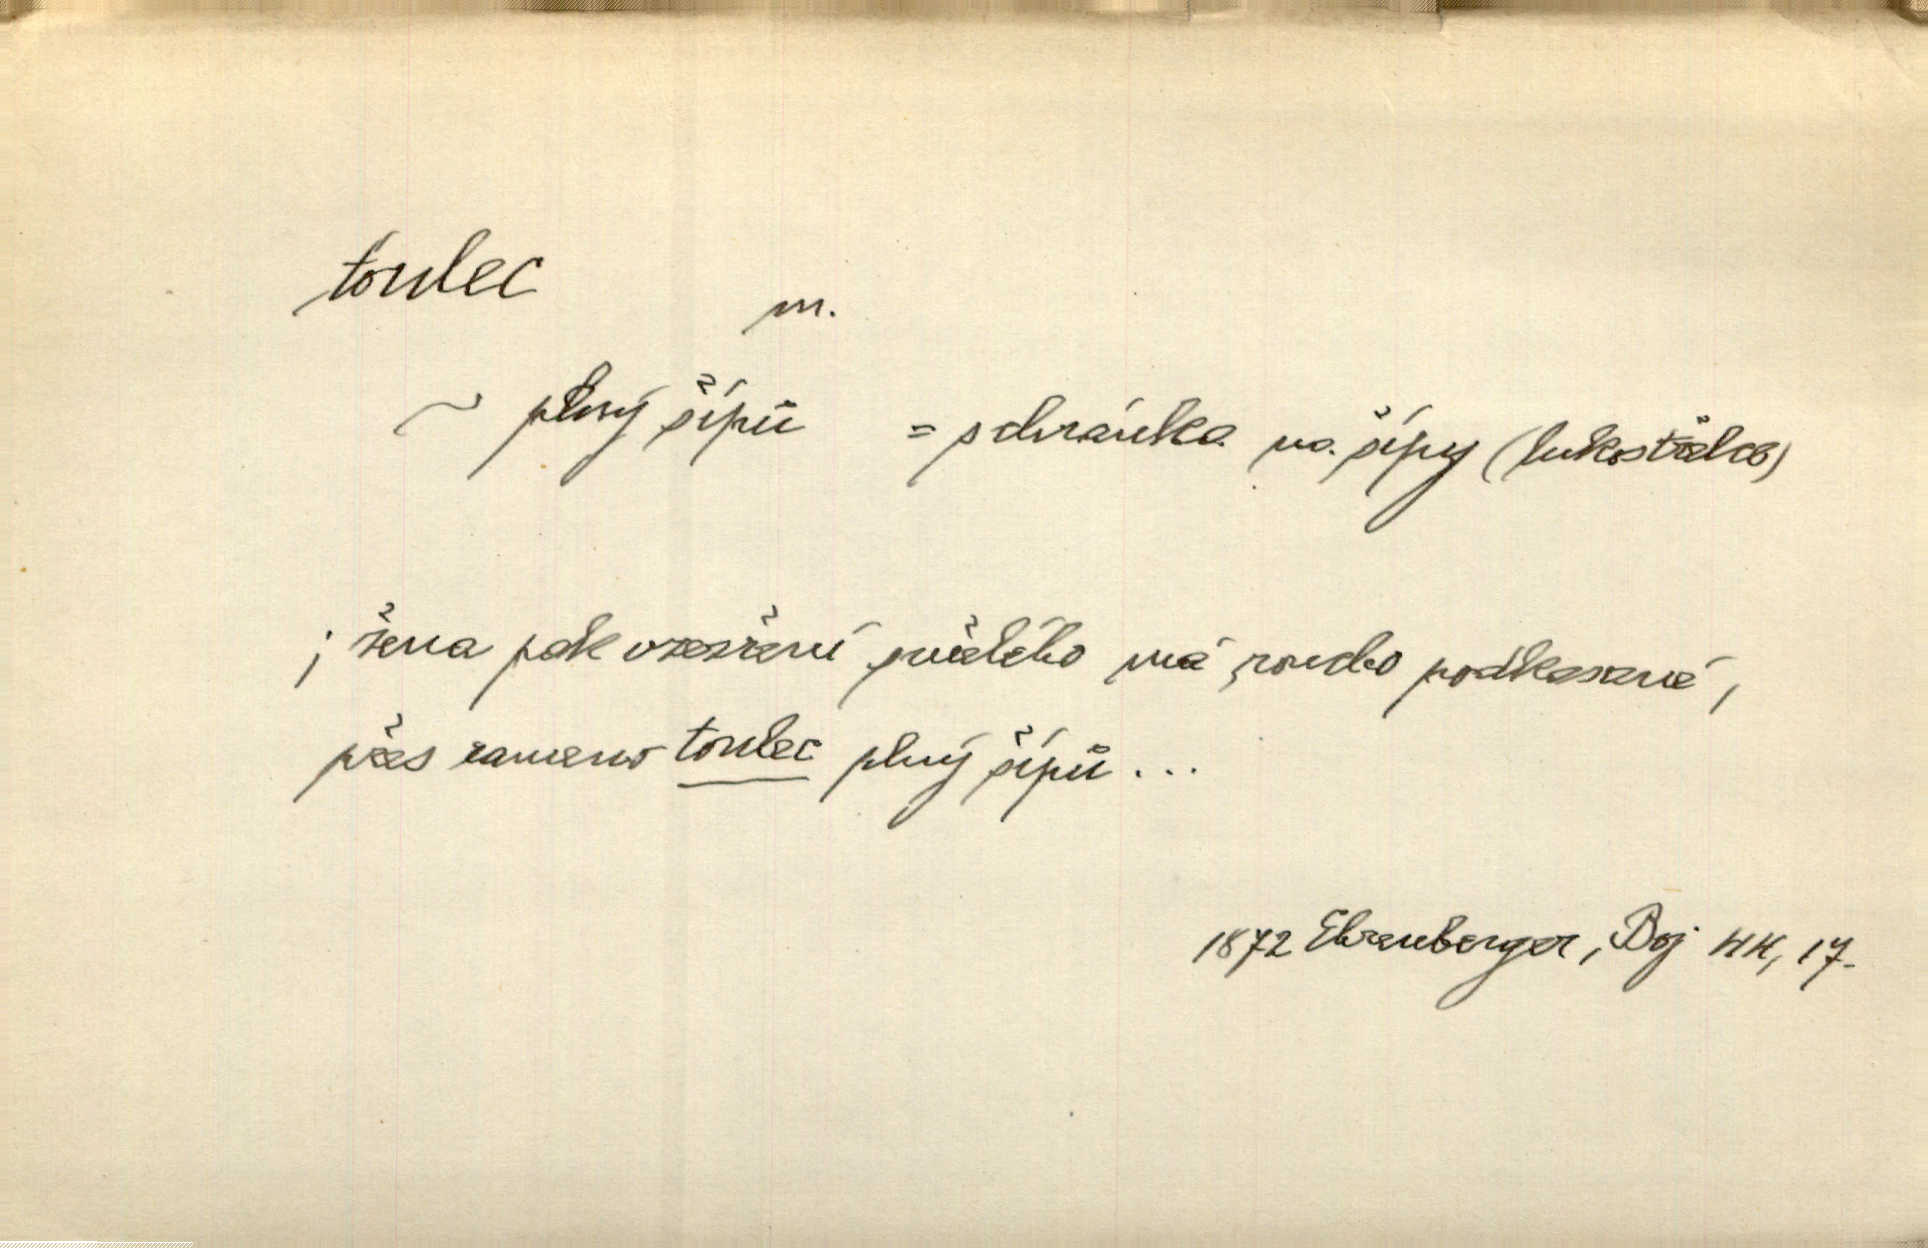 toulec
m.
~ plný šípů = schránka na šípy (lukostřelce)
; žena pak vzezření smělého má roucho podkasané,
přes rameno toulec plný šípů ...
1872 Ehrenberger, Boj HK, 17.